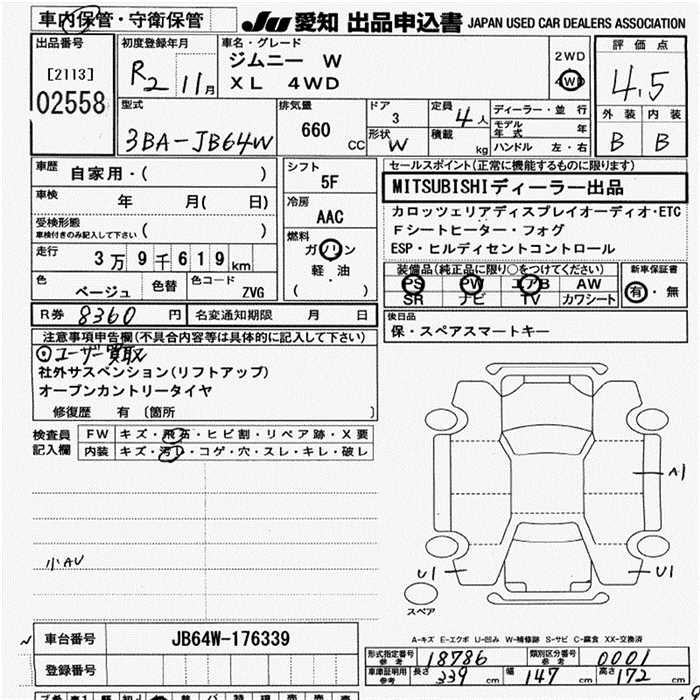 車内保管・守衛保管 JU 愛知 出品申込書 JAPAN USED CAR DEALERS ASSOCIATION
出品番号
[2113]
02558
初度登録年月
R2 11月
車名・グレード
ジムニー W
XL 4WD
2WD
4WD
評価点
4.5
外装 内装
B B
型式
3BA-JB64W
排気量
660 CC
ドア
3
形状
W
定員
4人
積載
kg
ディーラー・並行
モデル年式 年
ハンドル 左・右
車歴 自家用・( )
車検 年 月( 日)
受検形態
車検付きのみ記入して下さい ( )
走行 3万9千619km
色 ベージュ 色替 色コード ZVG
シフト
5F
冷房
AAC
燃料
ガソリン
軽・油
( )
セールスポイント(正常に機能するものに限ります)
MITSUBISHIディーラー出品
カロッツェリアディスプレイオーディオ・ETC
Fシートヒーター・フォグ
ESP・ヒルディセントコントロール
装備品(純正品に限り○をつけてください)
PS PW エアB AW
SR ナビ TV カワシート
新車保証書
有・無
R券 8360 円 名変通知期限 月 日
後日品
保・スペアスマートキー
注意事項申告欄(不具合内容等は具体的に記入して下さい)
⊙ユーザー買取
社外サスペンション(リフトアップ)
オープンカントリータイヤ
修復歴 有 [箇所 ]
検査員記入欄
FW キズ・飛石・ヒビ割・リペア跡・X要
内装 キズ・汚レ・コゲ・穴・スレ・キレ・破レ
小AU
A1
U1
U1
スペア
A-キズ E-エクボ U-凹み W-補修跡 S-サビ C-腐食 XX-交換済
車台番号 JB64W-176339
登録番号
形式指定番号 参考 18786 類別区分番号 参考 0001
車庫証明用 参考 長さ 339 cm 幅 147 cm 高さ 172 cm